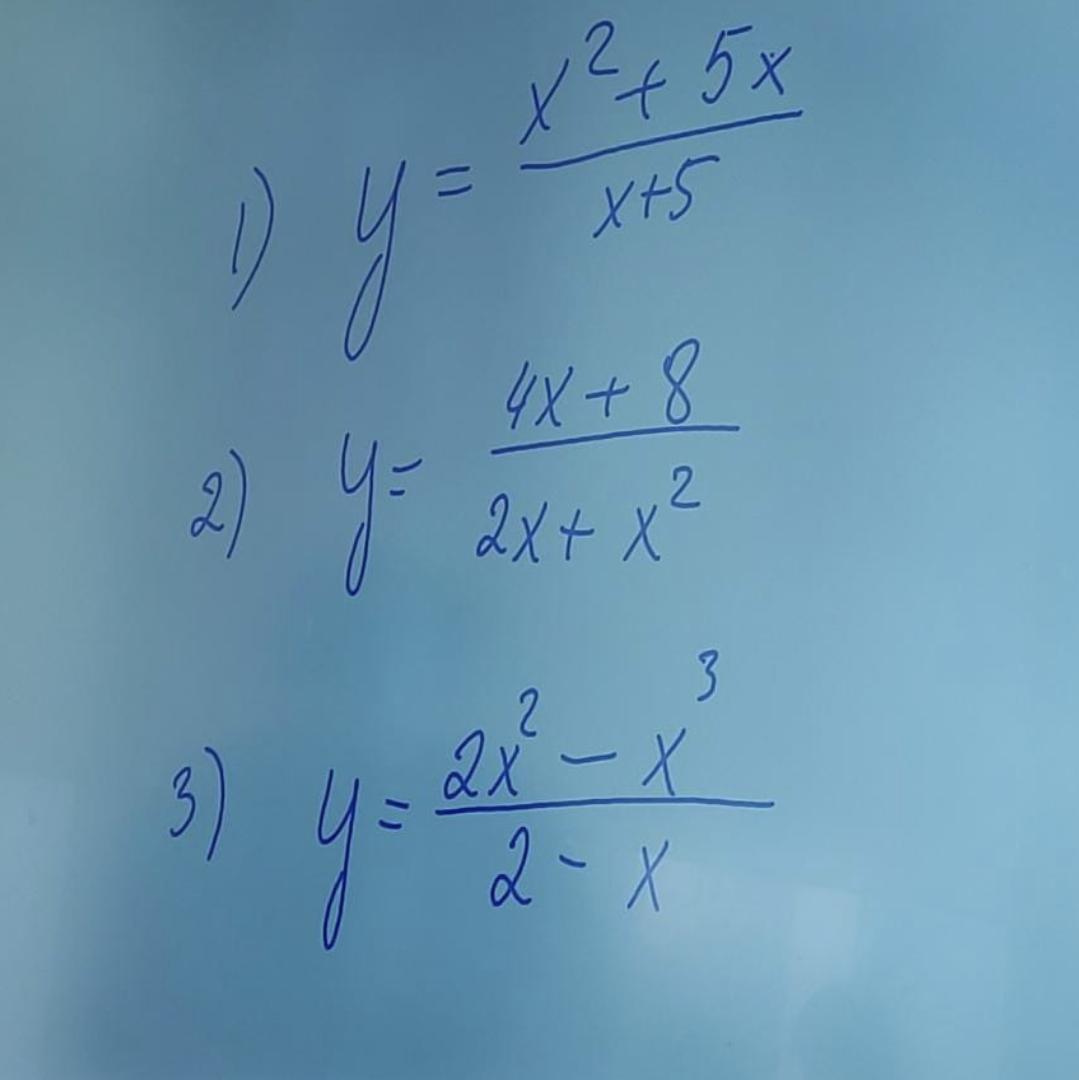 1) y = (x² + 5x)/(x+5)
2) y = (4x + 8)/(2x + x²)
3) y = (2x² − x³)/(2 − x)